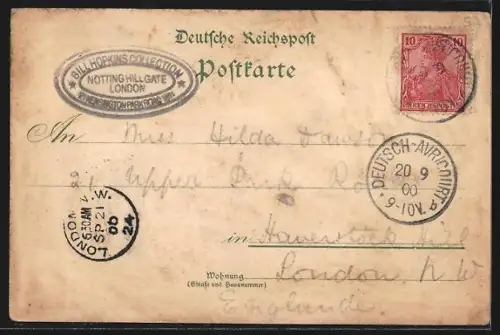 Deutsche Reichspost
Postkarte
BILL HOPKINS COLLECTION
NOTTING HILL GATE
LONDON
KENSINGTON PARK ROAD W11
10 10
REICHSPOST
DEUTSCH-AVRICOURT
20 9
00
9-10V.
An Miss Hilda Dawson
21 Upper Park Road
LONDON N.W.
6.30AM
SP 21
00
24
in Haverstock Hill
London N W
Wohnung
(Straße und Hausnummer)
Englande.